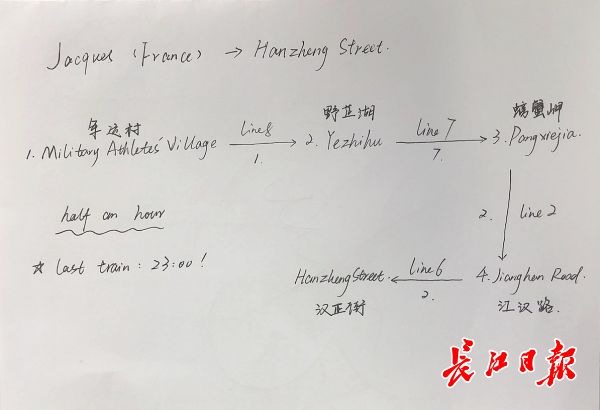 Jacques (France) → Hanzheng Street.
军运村 野芷湖 螃蟹岬
1. Military Athletes' Village line8 → 2. Yezhihu line 7 → 3. Pangxiejia.
1. 7.
half an hour 2. line 2
☆ last train : 23:00 !
Hanzheng Street. ← line6 4. Jianghan Road.
汉正街 2. 江汉路.
长江日报